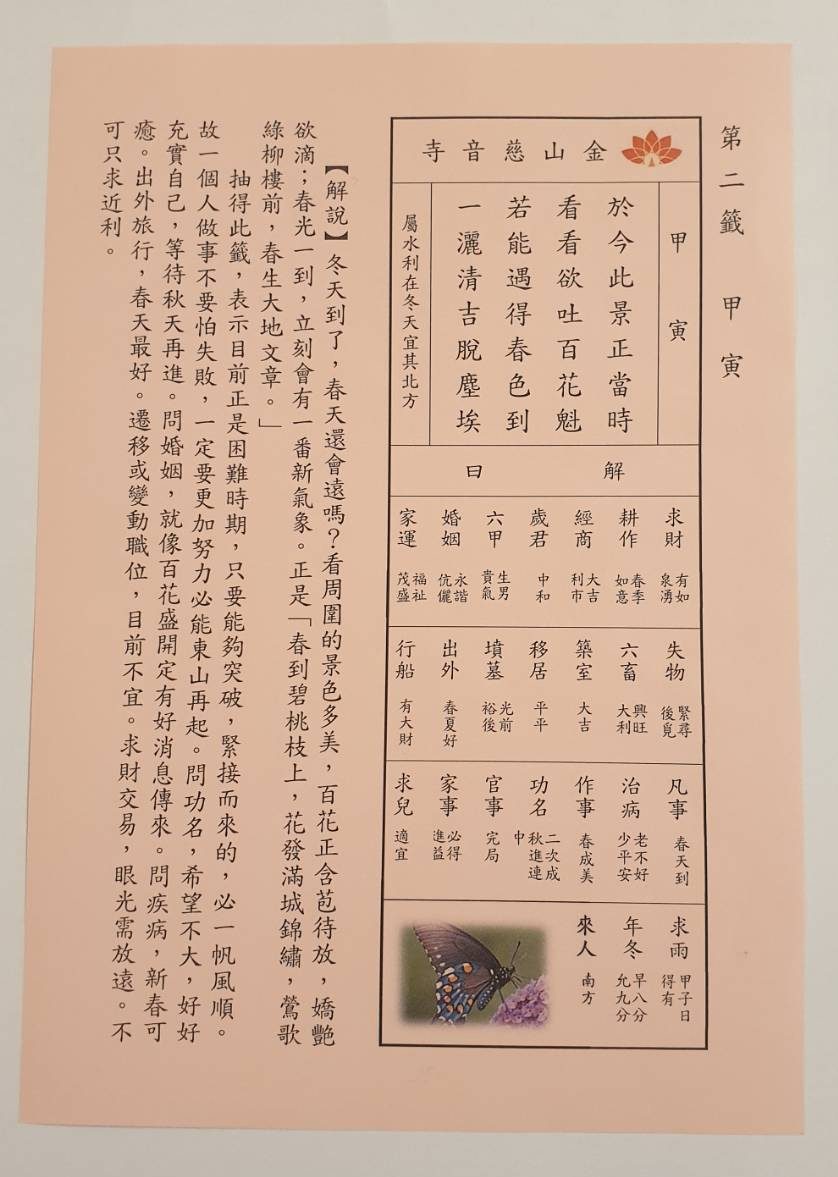 第二籤　甲寅
金山慈音寺
甲寅
於今此景正當時
看看欲吐百花魁
若能遇得春色到
一灑清吉脫塵埃
屬水利在冬天宜其北方
解曰
求財　有如泉湧
耕作　春季如意
經商　大吉利市
歲君　中和
六甲　生男貴氣
婚姻　永諧伉儷
家運　福祉茂盛
失物　緊尋後覓
六畜　興旺大利
築室　大吉
移居　平平
墳墓　光前裕後
出外　春夏好
行船　有大財
凡事　春天到
治病　老不好少平安
作事　春成美
功名　二次成秋進連中
官事　完局
家事　必得進益
求兒　適宜
求雨　甲子日得有
年冬　早八分允九分
來人　南方
【解說】冬天到了，春天還會遠嗎？看周圍的景色多美，百花正含苞待放，嬌艷
欲滴；春光一到，立刻會有一番新氣象。正是「春到碧桃枝上，花發滿城錦繡，鶯歌
綠柳樓前，春生大地文章。」
抽得此籤，表示目前正是困難時期，只要能夠突破，緊接而來的，必一帆風順。
故一個人做事不要怕失敗，一定要更加努力必能東山再起。問功名，希望不大，好好
充實自己，等待秋天再進。問婚姻，就像百花盛開定有好消息傳來。問疾病，新春可
癒。出外旅行，春天最好。遷移或變動職位，目前不宜。求財交易，眼光需放遠。不
可只求近利。